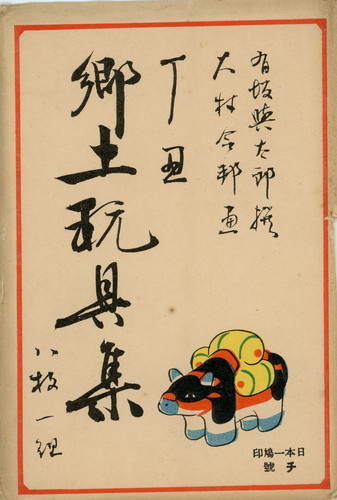 有坂與太郎撰
大村合邦画
丁丑
郷土玩具集
八枚一組
日本一鳩印
子號